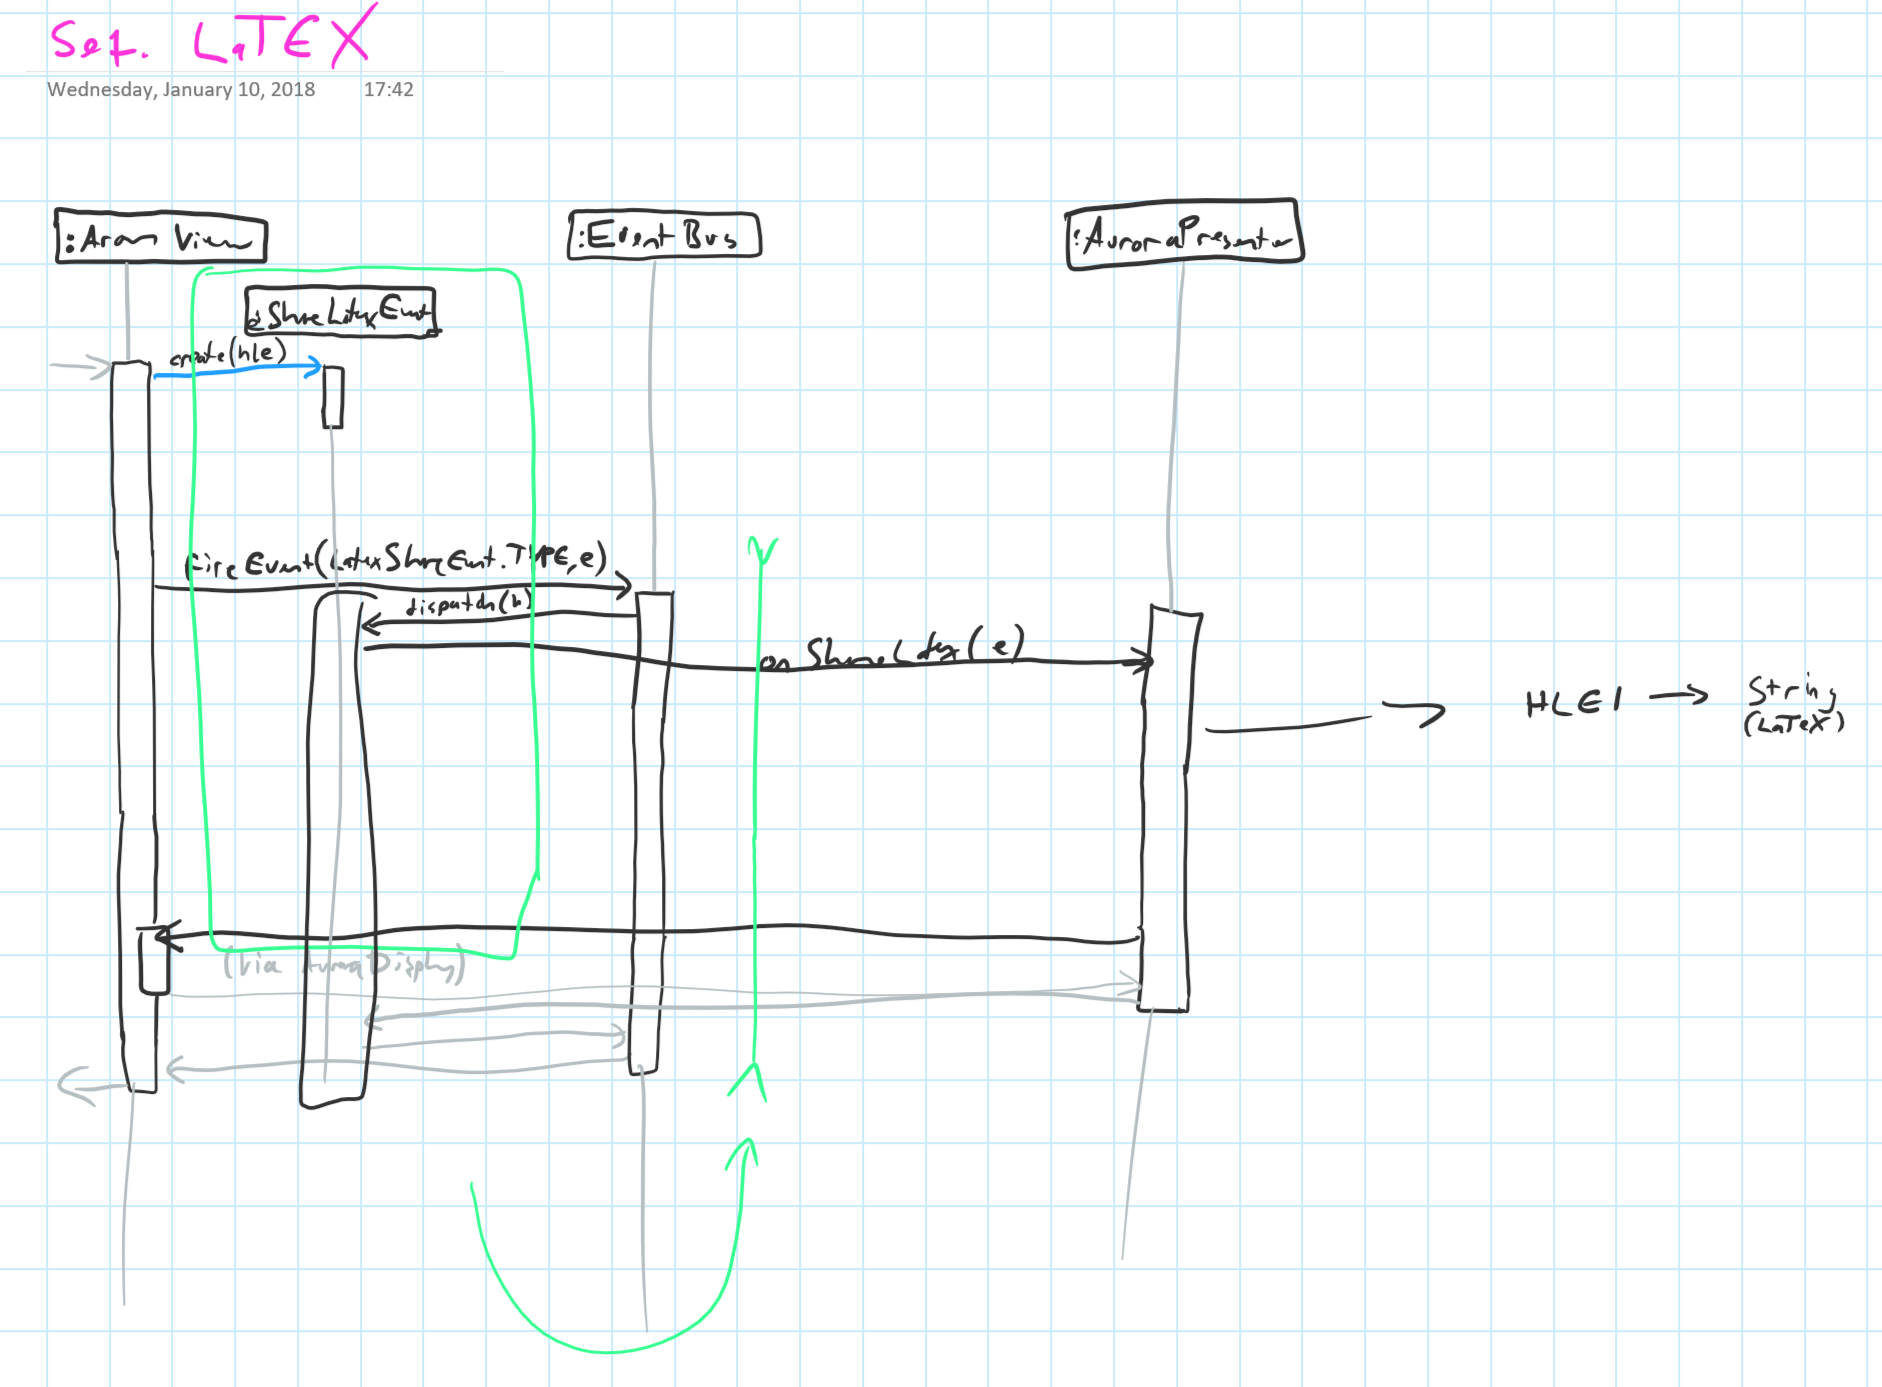 Seq. LaTEX
Wednesday, January 10, 2018 17:42
:Aurora View
:EventBus
:AuroraPresenter
e:ShareLatexEvent
create(hle)
fireEvent(LatexShareEvent.TYPE,e)
dispatch(h)
onShareLatex(e)
HLE1
String
(LaTeX)
(via AuroraDisplay)